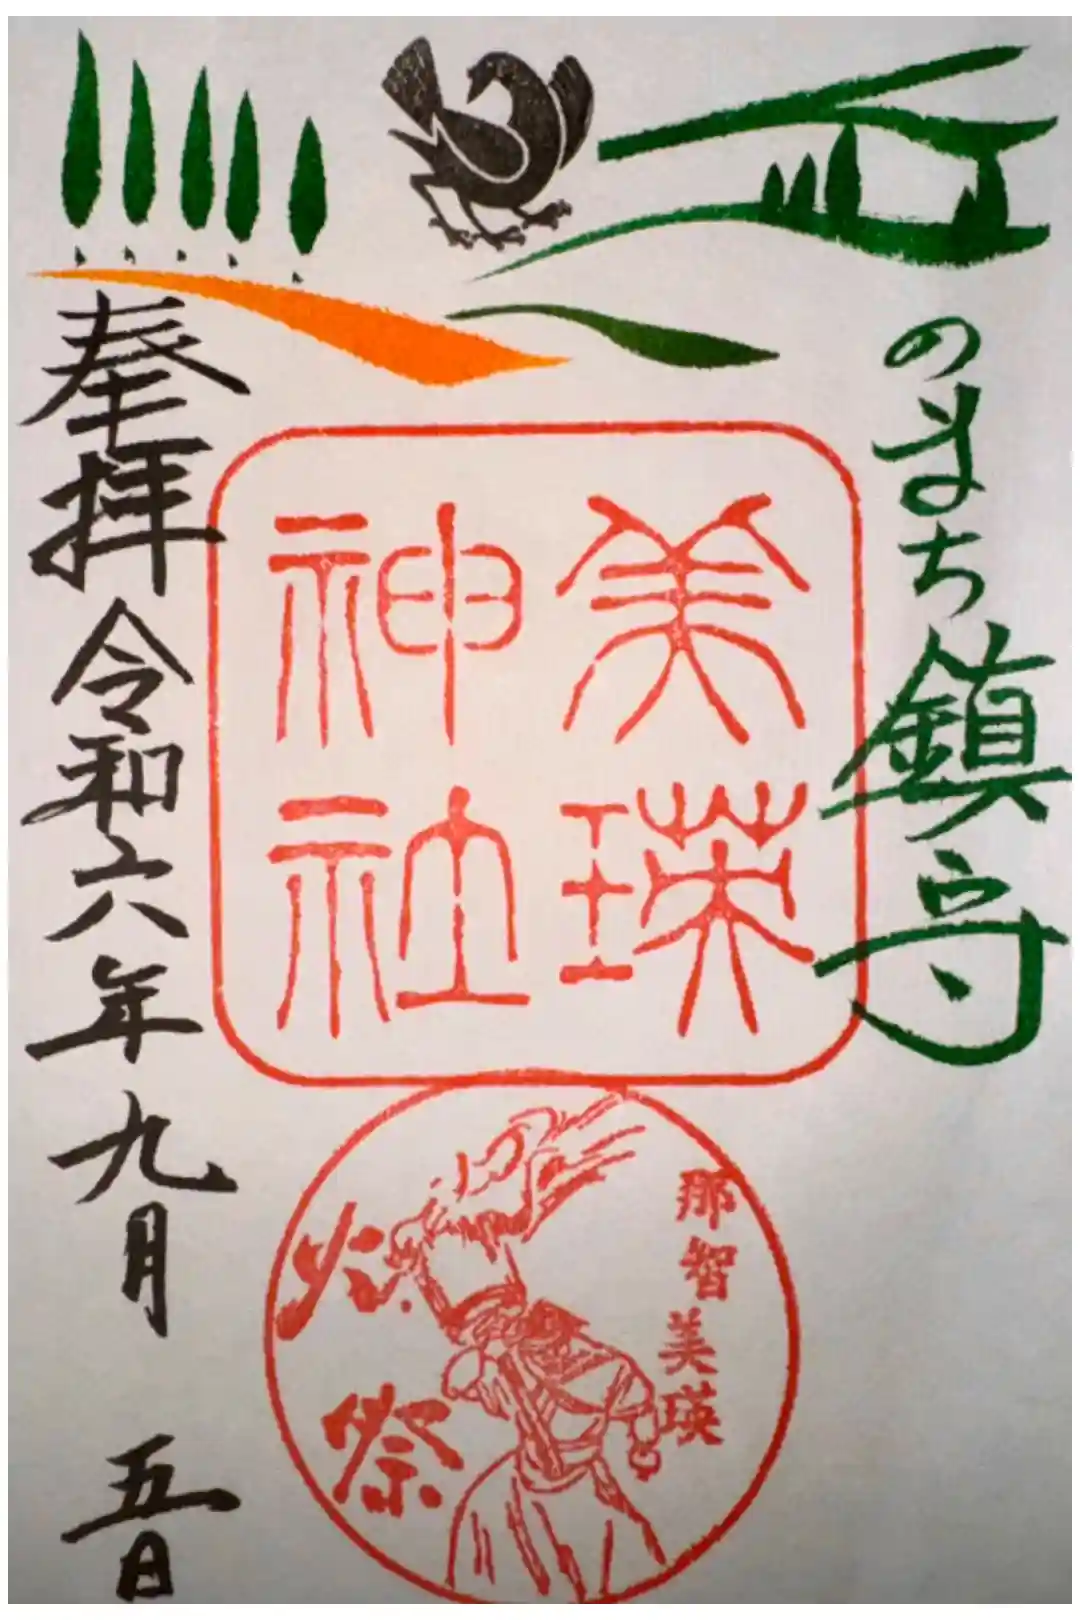 丘のまち鎮守
美瑛
神社
那智美瑛
火祭
奉拝 令和六年九月五日